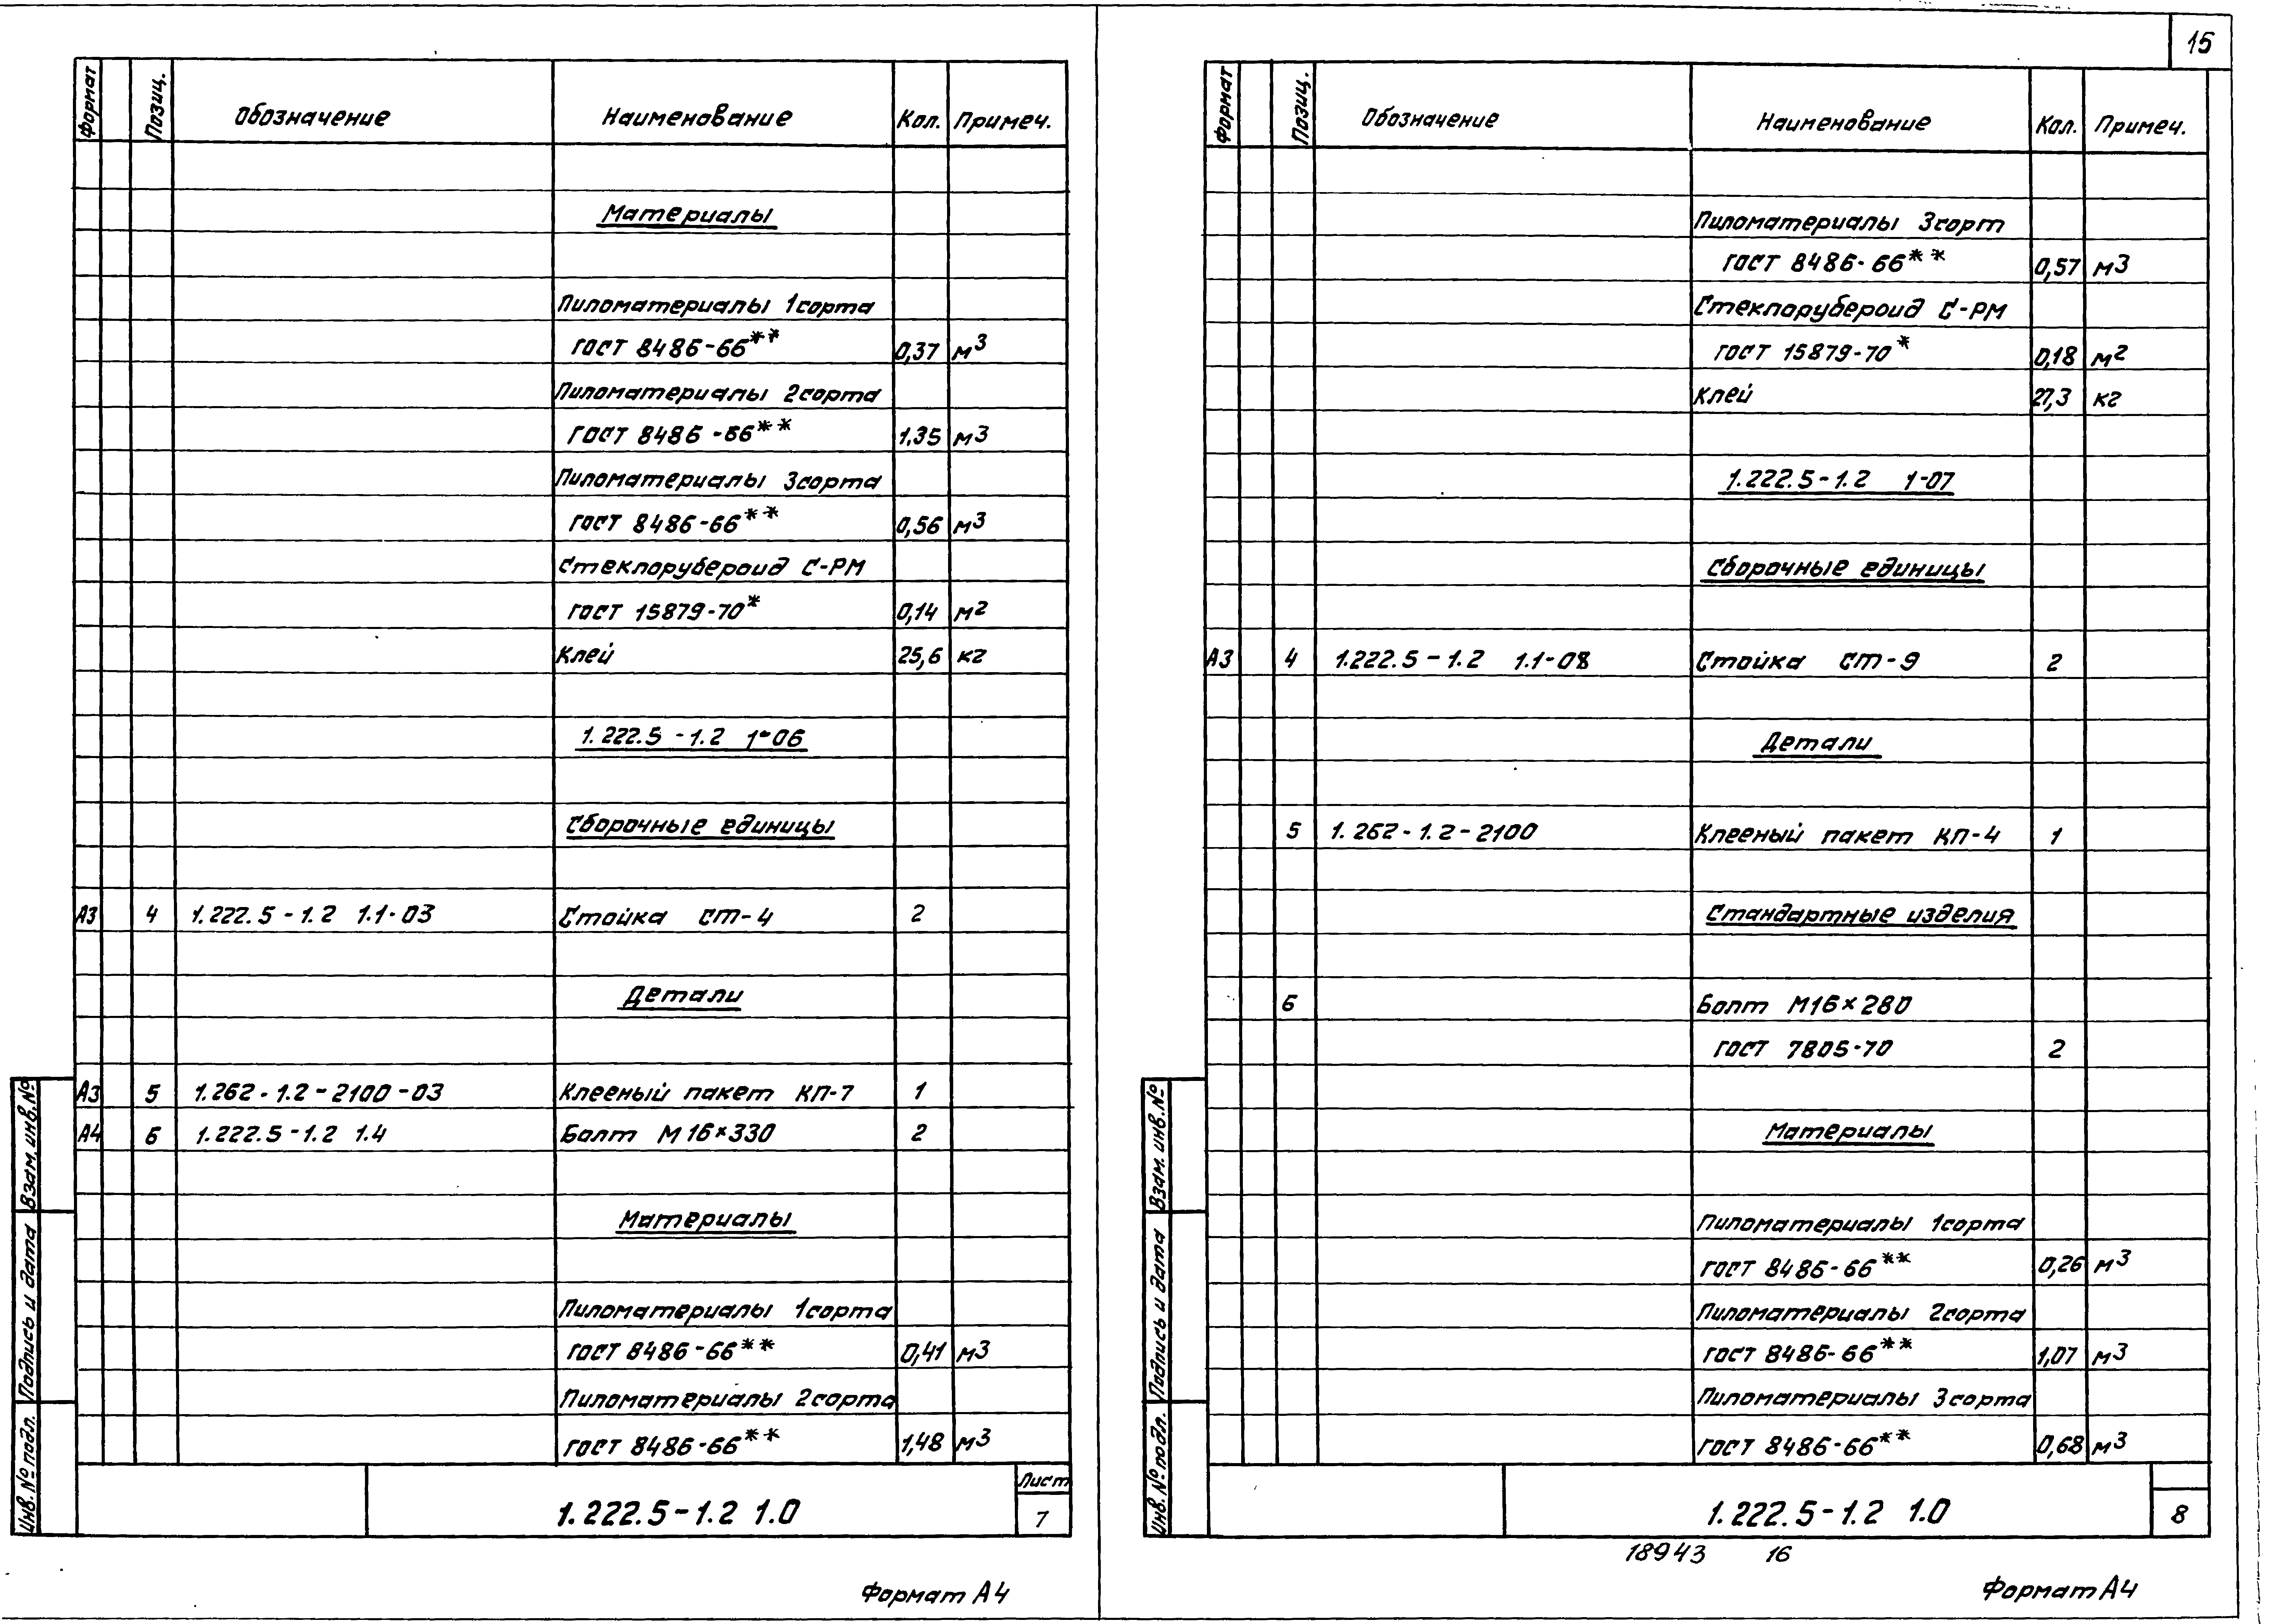 15
Формат Позиц. Обозначение Наименование Кол. Примеч.
Материалы
Пиломатериалы 1сорта
ГОСТ 8486-66** 0,37 м3
Пиломатериалы 2сорта
ГОСТ 8486-66** 1,35 м3
Пиломатериалы 3сорта
ГОСТ 8486-66** 0,56 м3
Стеклорубероид С-РМ
ГОСТ 15879-70* 0,14 м2
Клей 25,6 кг
1.222.5-1.2 1-06
Сборочные единицы
А3 4 1.222.5-1.2 1.1-03 Стойка СТ-4 2
Детали
А3 5 1.262-1.2-2100-03 Клееный пакет КП-7 1
А4 6 1.222.5-1.2 1.4 Болт М16×330 2
Материалы
Пиломатериалы 1сорта
ГОСТ 8486-66** 0,41 м3
Пиломатериалы 2сорта
ГОСТ 8486-66** 1,48 м3
Взам. инв.№
Подпись и дата
Инв.№подл.
1.222.5-1.2 1.0
Лист
7
Формат А4
Формат Позиц. Обозначение Наименование Кол. Примеч.
Пиломатериалы 3сорт
ГОСТ 8486-66** 0,57 м3
Стеклорубероид С-РМ
ГОСТ 15879-70* 0,18 м2
Клей 27,3 кг
1.222.5-1.2 1-07
Сборочные единицы
А3 4 1.222.5-1.2 1.1-08 Стойка СТ-9 2
Детали
5 1.262-1.2-2100 Клееный пакет КП-4 1
Стандартные изделия
6 Болт М16×280
ГОСТ 7805-70 2
Материалы
Пиломатериалы 1сорта
ГОСТ 8486-66** 0,26 м3
Пиломатериалы 2сорта
ГОСТ 8486-66** 1,07 м3
Пиломатериалы 3сорта
ГОСТ 8486-66** 0,68 м3
Взам. инв.№
Подпись и дата
Инв.№подл.
1.222.5-1.2 1.0
8
18943 16
Формат А4